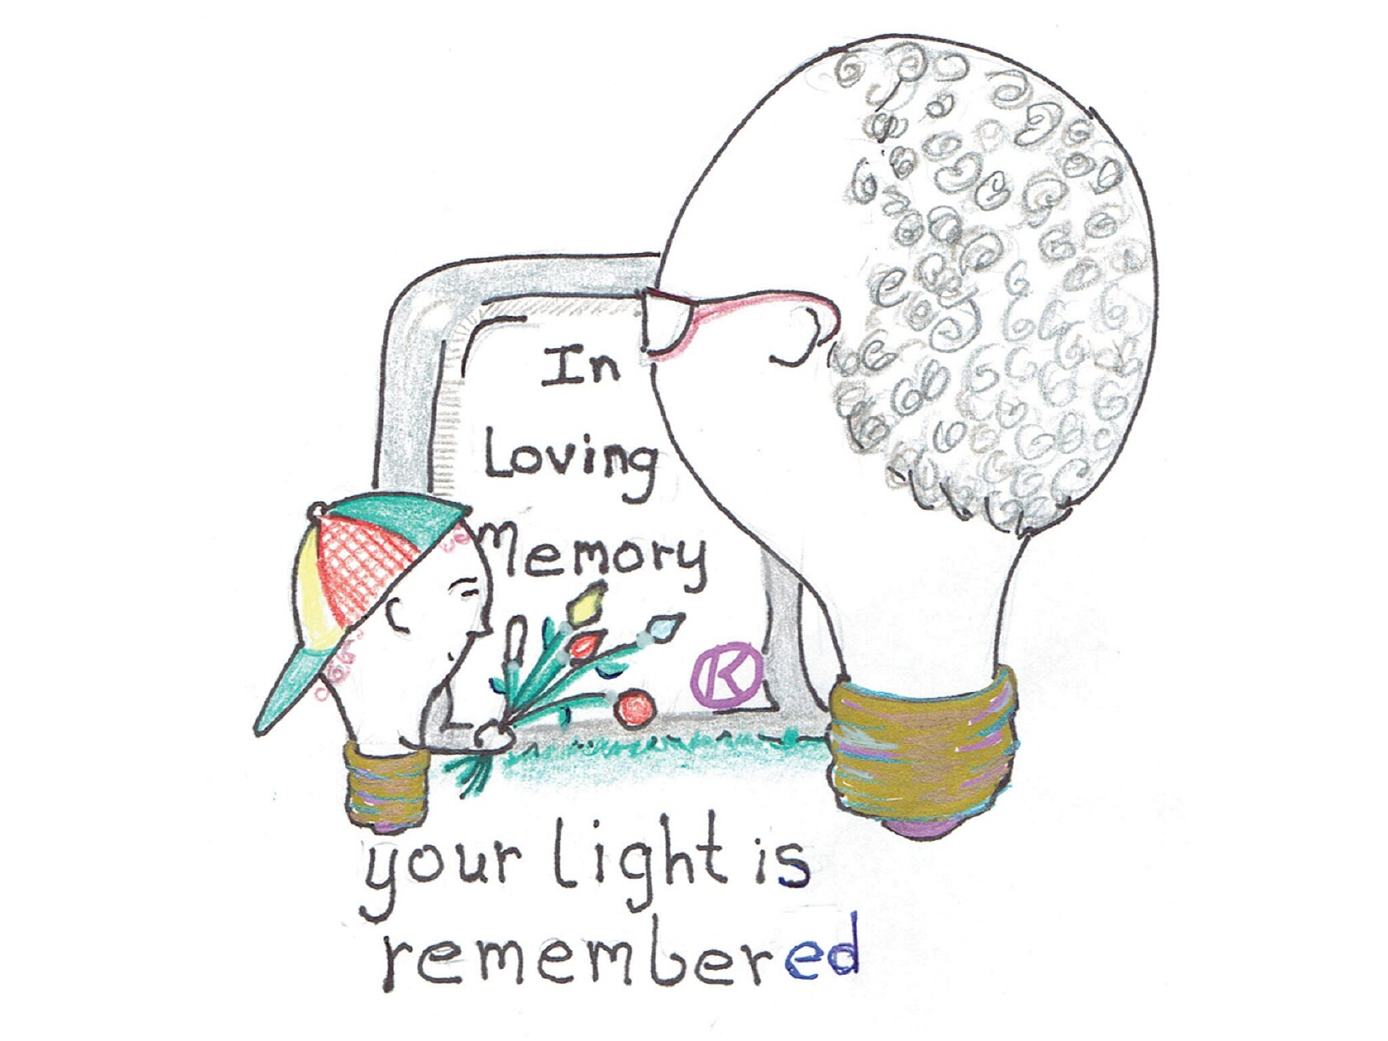 In
Loving
Memory
K
your light is
remembered